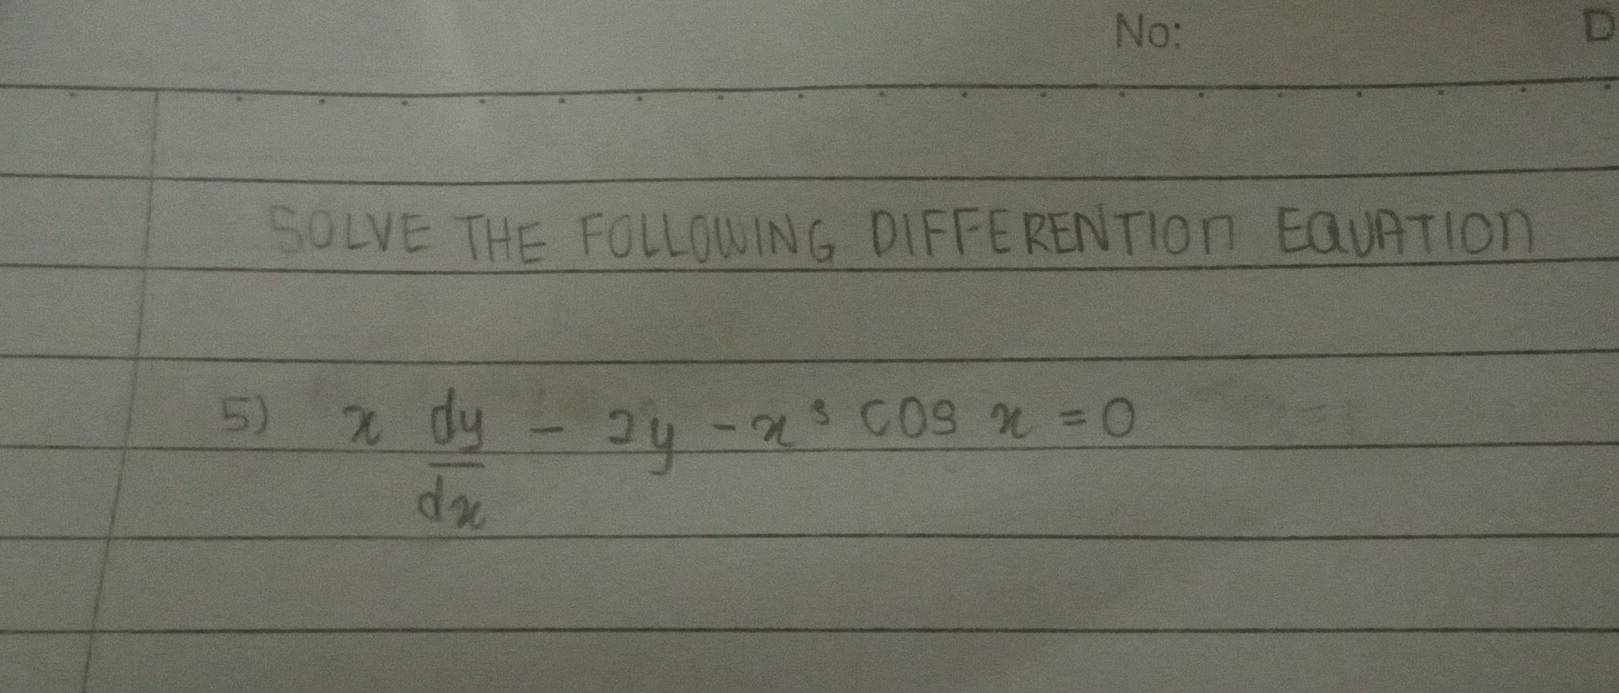 No: D
SOLVE THE FOLLOWING DIFFERENTION EQUATION
5) x dy/dx - 2y - x³ cos x = 0